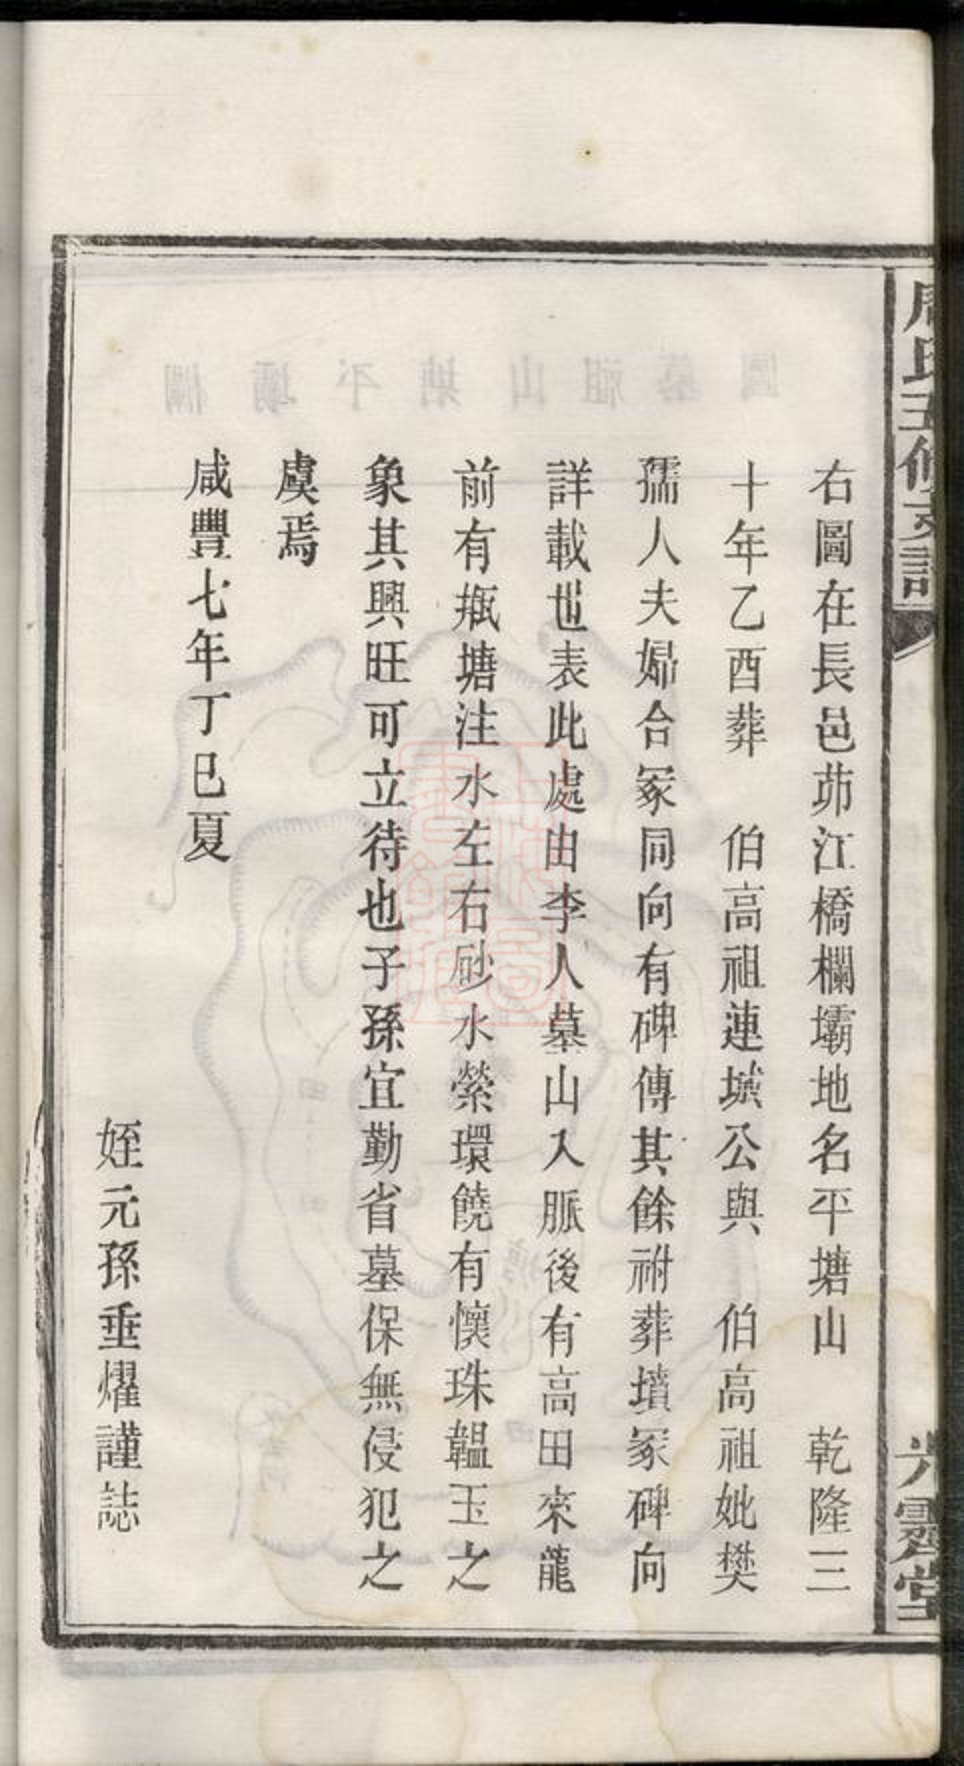 周氏五修支譜
光霽堂
右圖在長邑茆江橋欄壩地名平塘山 乾隆三
十年乙酉葬 伯高祖連城公與 伯高祖妣樊
孺人夫婦合冢同向有碑傳其餘祔葬墳冢碑向
詳載世表此處由李人墓山入脈後有高田來龍
前有瓶塘注水左右砂水縈環饒有懷珠韞玉之
象其興旺可立待也子孫宜勤省墓保無侵犯之
虞焉
咸豐七年丁巳夏
姪元孫垂燿謹誌